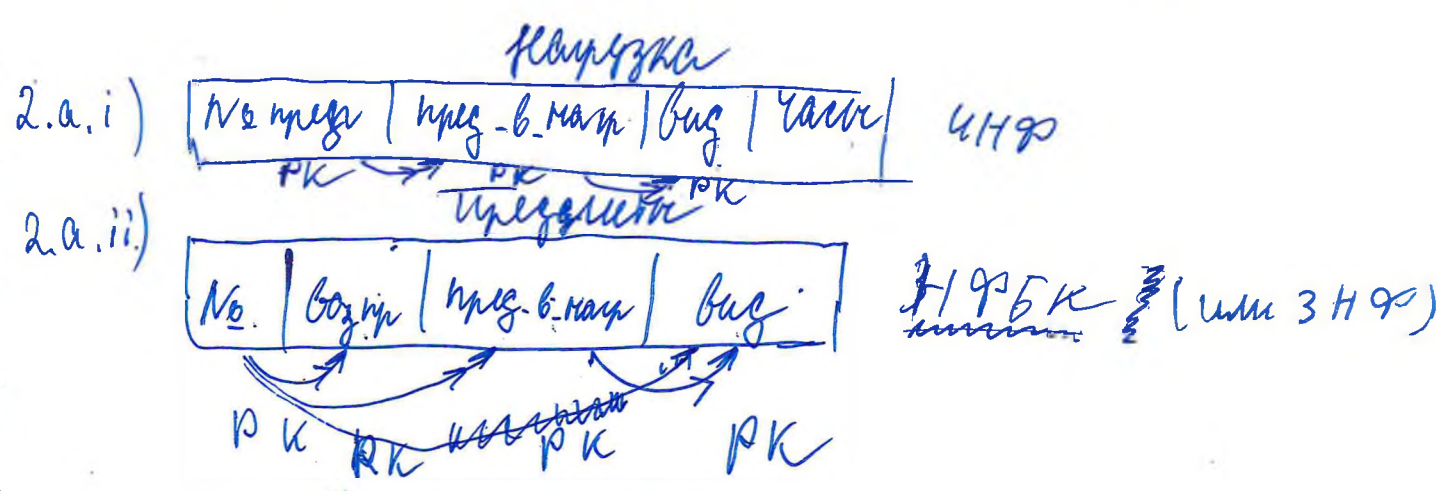 Нагрузка
2.a.i) № пред | пред-в-нагр | вид | Часы 4НФ
PK PK PK
Предметы
2.a.ii)
№ | Воз пр | пред-в-нагр | вид НФБК (или 3НФ)
PK PK PK PK